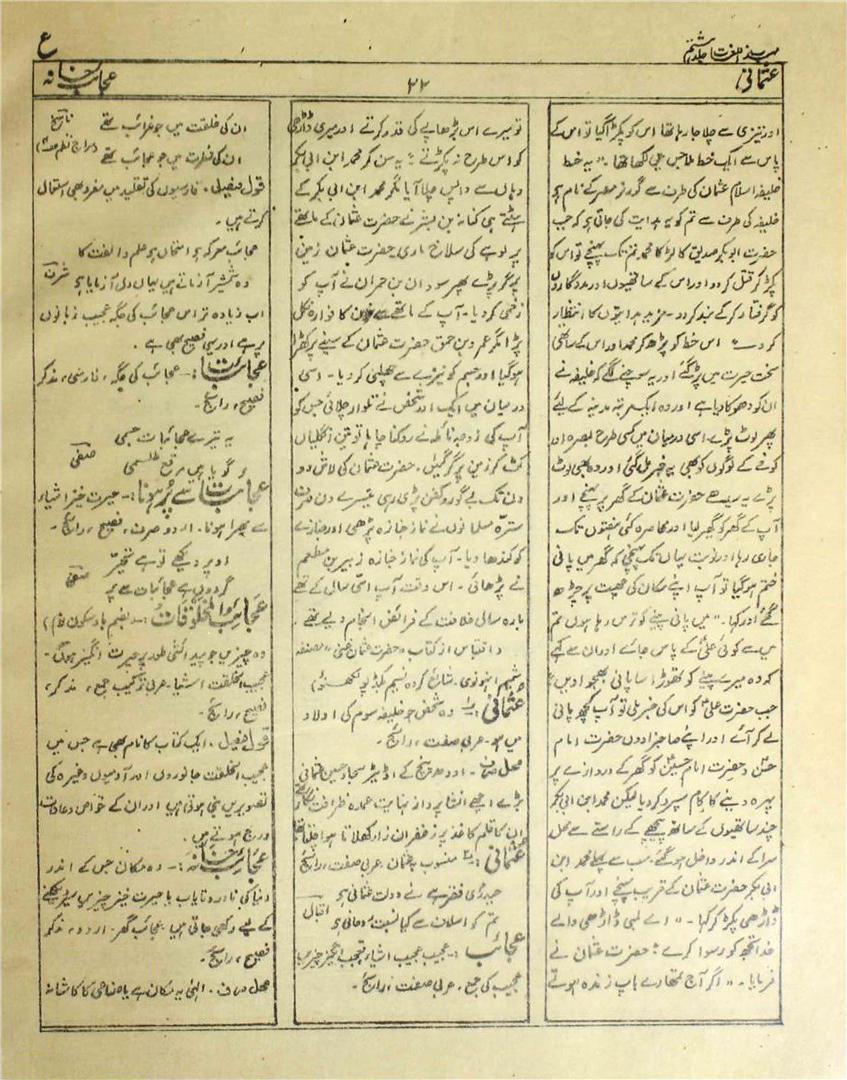 ع
مہذب اللغت جلد ہشتم
عجائب خانہ
۲۲
عثمانی
اور تیزی سے چلا جا رہا تھا اس کو پکڑا گیا تو اس کے
پاس سے ایک خط ملا جس میں لکھا تھا ۔ " یہ خط
خلیفہ اسلام عثمان کی طرف سے گورنر مصر کے نام ہو
خلیفہ کی طرف سے تم کو یہ ہدایت کی جاتی ہو کہ جب
حضرت ابو بکر صدیق کا لڑکا محمد تم تک پہنچے تو اس کو
پکڑ کر قتل کر دو اور اس کے ساتھیوں اور مددگاروں
کو گرفتار کر کے بند کر دو ۔ مزید ہدایتوں کا انتظار
کرو " اس خط کو پڑھ کر محمد اور اس کے ساتھی
سخت حیرت میں پڑ گئے اور یہ سوچنے لگے کہ خلیفہ نے
ان کو دھوکا دیا ہے اور وہ ایک مرتبہ مدینہ کے لیے
پھر لوٹ پڑے ۔ اسی درمیان میں کسی طرح بصرہ اور
کوفے کے لوگوں کو بھی یہ خبر مل گئی اور وہ بھی لوٹ
پڑے یہ سیدھے حضرت عثمان کے گھر پر پہنچے اور
آپ کے گھر کو گھیر لیا اور محاصرہ کئی ہفتوں تک
جاری رہا اور نوبت یہاں تک پہنچی کہ گھر میں پانی
ختم ہو گیا تو آپ اپنے مکان کی چھت پر چڑھ
گئے اور کہا ۔ " میں پانی پینے کو ترس رہا ہوں تم
میں سے کوئی علیؑ کے پاس جائے اور ان سے کہے
کہ وہ میرے پینے کو تھوڑا سا پانی بھیجوا دیں "
جب حضرت علیؑ کو اس کی خبر ملی تو آپ کچھ پانی
لے کر آئے اور اپنے صاحبزادوں حضرت امام
حسنؑ و حضرت امام حسینؑ کو گھر کے دروازے پر
پہرہ دینے کا کام سپرد کر دیا لیکن محمد ابن ابی بکر
چند ساتھیوں کے ساتھ پیچھے کے راستے سے محل
سرا کے اندر داخل ہو گئے ۔ سب سے پہلے محمد ابن
ابی بکر حضرت عثمان کے قریب پہنچے اور آپ کی
ڈاڑھی پکڑ کر کہا ۔ " اے لمبی ڈاڑھی والے
خدا تجھ کو رسوا کرے " حضرت عثمان نے
فرمایا ۔ " اگر آج تمھارے باپ زندہ ہوتے
تو میرے اس بڑھاپے کی قدر کرتے اور میری ڈاڑھی
کو اس طرح نہ پکڑتے " یہ سن کر محمد ابن ابی بکر
وہاں سے واپس چلا آیا مگر محمد ابن ابی بکر کے
ہٹتے ہی کنانہ بن بشر نے حضرت عثمان کے ماتھے
پر لوہے کی سلاخ ماری حضرت عثمان زمین
پر گر پڑے پھر سودان بن حمران نے آپ کو
زخمی کر دیا ۔ آپ کے ماتھے سے خون کا فوارہ نکل
پڑا مگر عمرو بن حمق حضرت عثمان کے سینے پر کھڑا
ہو گیا اور جسم کو نیزے سے چھلنی کر دیا ۔ اسی
درمیان میں ایک اور شخص نے تلوار چلائی جس کو
آپ کی زوجہ نائلہ نے روکنا چاہا تو تین انگلیاں
کٹ کر زمین پر گر گئیں ۔ حضرت عثمان کی لاش دو
دن تک بے گور و کفن پڑی رہی تیسرے دن صرف
سترہ مسلمانوں نے نماز جنازہ پڑھی اور جنازے
کو کندھا دیا ۔ آپ کی نماز جنازہ زبیر بن مطعم
نے پڑھائی ۔ اس وقت آپ اسی سال کے تھے
بارہ سال خلافت کے فرائض انجام دیے تھے ۔
( اقتباس از کتاب " حضرت عثمان غنی " مصنفہ
شمیم انہونوی ۔ شائع کردہ نسیم بکڈپو لکھنؤ )
عثمانی : وہ شخص جو خلیفہ سوم کی اولاد
میں ہو ۔ عربی صفت ، رائج ۔
محل صرف ۔ اودھ پنچ کے اڈیٹر سجاد حسین عثمانی
بڑے اچھے انشا پرداز نہایت عمدہ ظرافت نگار تھے
ان کا قلم کاغذ پر زعفران زار کھلاتا ہوا چلتا تھا
عثمانی : منسوب بہ عثمان عربی صفت ، رائج
حیدری فقر ہے نے دولت عثمانی ہو
تم کو اسلاف سے کیا نسبت روحانی ہو اقبال
عجائب :۔ عجیب عجیب اشیاء تعجب انگیز چیزیں
عجیب کی جمع ۔ عربی صفت ، رائج ۔
ان کی خلقت میں جو غرائب تھے
ان کی فطرت میں جو عجائب تھے
قول فیصل ۔ فارسیوں کی تقلید میں مفرد بھی استعمال
کرتے ہیں ۔
عجائب معرکہ ہو امتحاں ہو علم و الفت کا
وہ شمشیر آزماتے ہیں یہاں دل آزمایا ہو شرف
اب زیادہ تر اس عجائب کی جگہ عجیب زبانوں
پر ہے اور یہی فصیح بھی ہے ۔
عجائبات :۔ عجائب کی جگہ ، فارسی ، مذکر
فصیح ، رائج ۔
یہ تیرے عجائبات جسمی
گویا ہیں مرقع طلسمی صفی
عجائبات سے پُر ہونا :۔ حیرت خیز اشیاء
سے بھرا ہونا ۔ اردو صرف ، فصیح ، رائج ۔
اوپر دیکھے تو ہے تحیّر
گردوں ہے عجائبات سے پر صفی
عجائب المخلوقات :۔
وہ چیزیں جو پیدائشی طور پر حیرت انگیز ہوں ۔
عجیب الخلقت اشیا ۔ عربی ترکیب جمع ، مذکر ،
فصیح ، رائج ۔
قول فیصل ۔ ایک کتاب کا نام بھی ہے جس میں
عجیب الخلقت جانوروں اور آدمیوں وغیرہ کی
تصویریں بنی ہوتی ہیں اور ان کے خواص و عادات
درج ہوتے ہیں ۔
عجائب خانہ :۔ وہ مکان جس کے اندر
دنیا کی نادر و نایاب یا حیرت خیز چیزیں سیر دیکھنے
کے لیے رکھی جاتی ہیں ۔ عجائب گھر ۔ اردو ، مذکر
فصیح ، رائج ۔
محل صرف ۔ الٰہی یہ مکان ہے یا مناجی کا کاشانہ